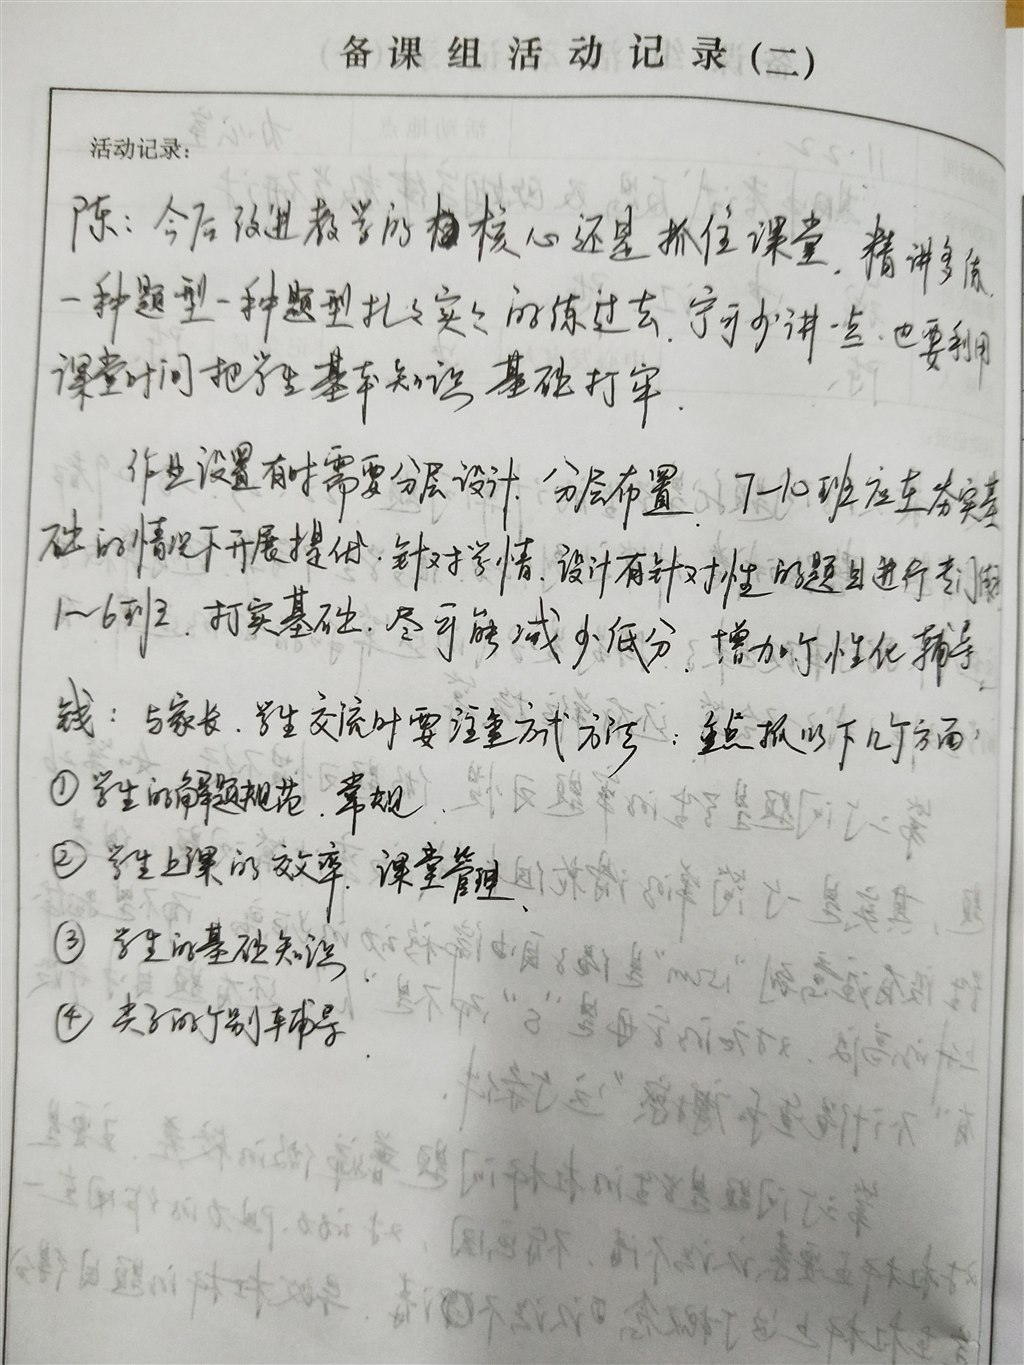 备课组活动记录(二)
活动记录:
陈: 今后改进教学的核心还是抓住课堂, 精讲多练,
一种题型一种题型扎扎实实的练过去, 宁可少讲一点, 也要利用
课堂时间把学生基本知识基础打牢.
作业设置有时需要分层设计, 分层布置. 7-10班应在夯实基
础的情况下开展提优, 针对学情, 设计有针对性的题目进行专门
1~6班, 打实基础, 尽可能减少低分, 增加个性化辅导.
钱: 与家长、学生交流时要注重方式方法; 重点抓以下几个方面:
① 学生的解题规范、常规.
② 学生上课的效率、课堂管理、
③ 学生的基础知识
④ 尖子的个别辅导.